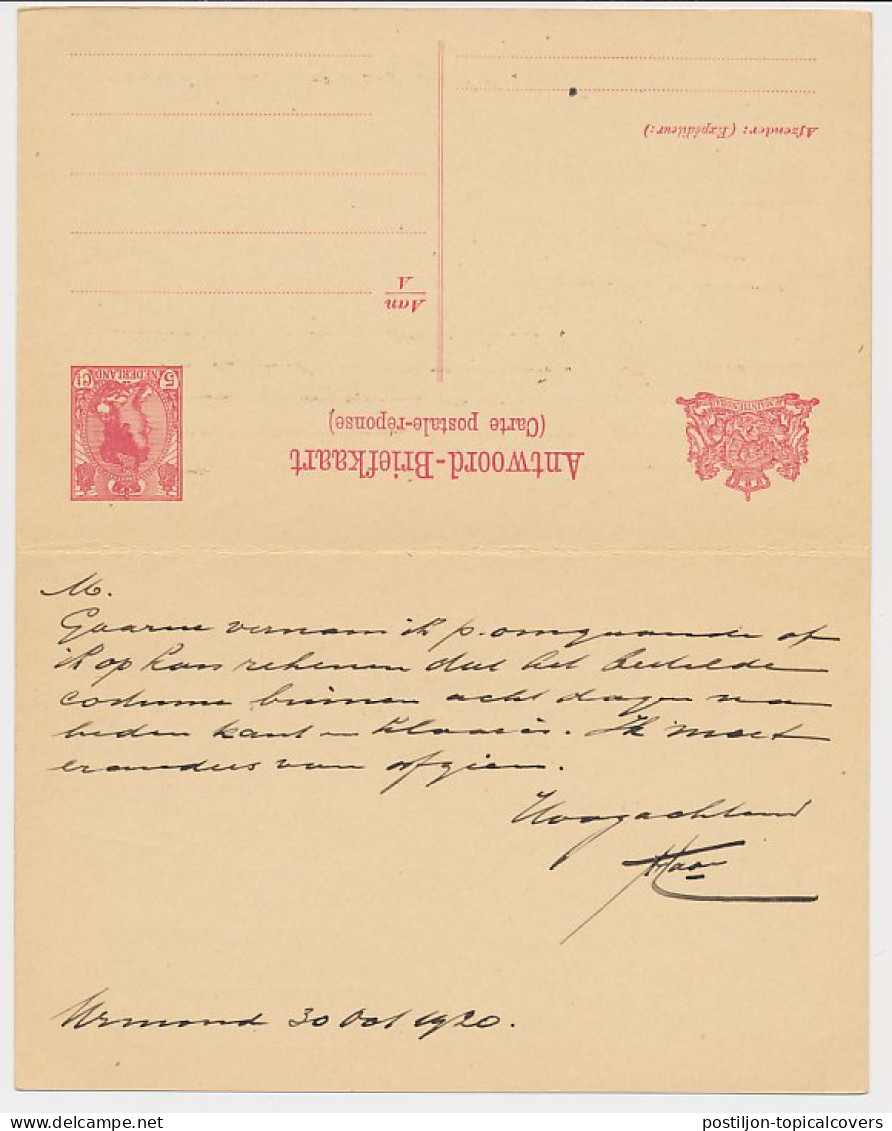 Afzender: (Expéditeur:)
Aan
A
5 Ct
NEDERLAND
JE MAINTIENDRAI
Antwoord-Briefkaart
(Carte postale-réponse)
M.
Gaarne vernam ik p. omgaande of
ik op kan rekenen dat het bestelde
costume binnen acht dagen na
heden kant en klaar is. Ik moet
er anders van afzien.
Hoogachtend
Urmond 30 Oct 1920.
postiljon-topicalcovers